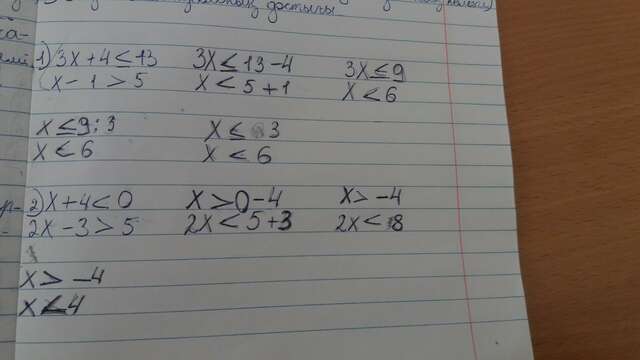 достығы
1) 3x+4≤13 3x≤13-4 3x≤9
x-1>5 x<5+1 x<6
x≤9:3 x≤3
x<6 x<6
2) x+4<0 x>0-4 x>-4
2x-3>5 2x<5+3 2x<8
x>-4
x<4